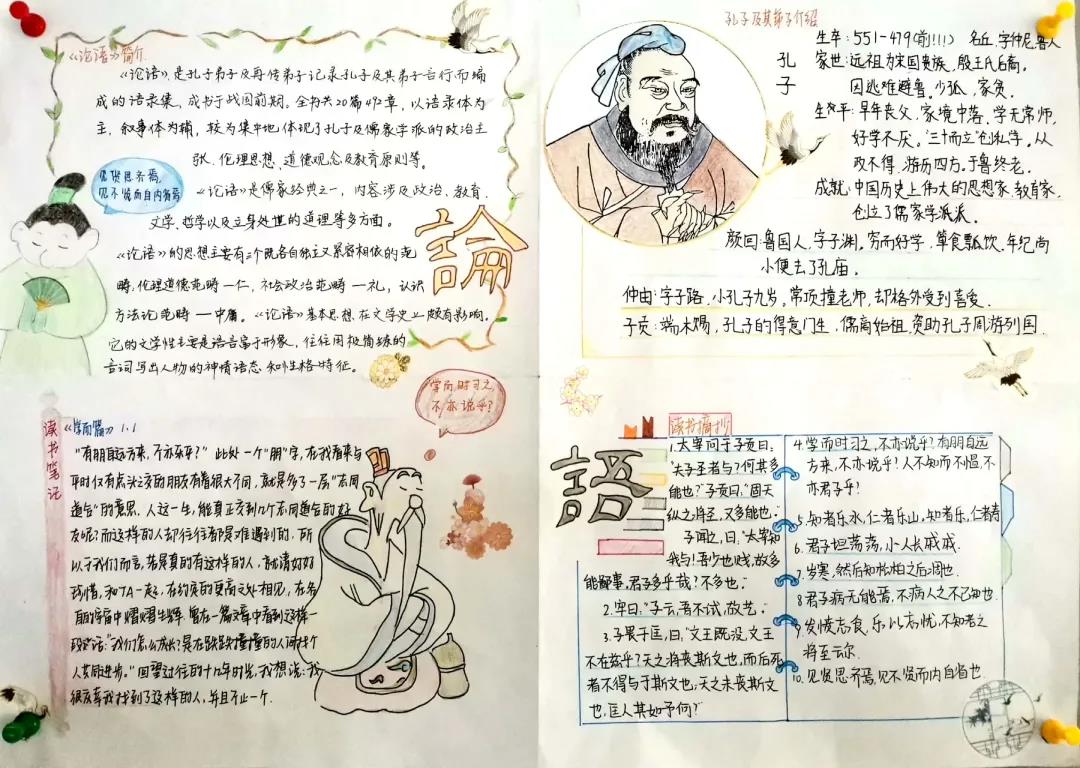 《论语》简介
《论语》是孔子弟子及再传弟子记录孔子及其弟子言行而编
成的语录集，成书于战国前期。全书共20篇492章，以语录体为
主，叙事体为辅，较为集中地体现了孔子及儒家学派的政治主
张、伦理思想、道德观念及教育原则等。
《论语》是儒家经典之一，内容涉及政治、教育、
文学、哲学以及立身处世的道理等多方面。
《论语》的思想主要有三个既各自独立又紧密相依的范
畴：伦理道德范畴—仁，社会政治范畴—礼，认识
方法论范畴—中庸。《论语》基本思想，在文学史上颇有影响。
它的文学性主要是语言寓于形象，往往用极简练的
言词写出人物的神情语态和性格特征。
见贤思齐焉，
见不贤而自内省焉
論
孔子及其弟子介绍
孔子
生卒：551-479(前!!!) 名丘，字仲尼，鲁人
家世：远祖为宋国贵族，殷王氏后裔。
因逃难避鲁。少孤，家贫。
生平：早年丧父，家境中落，学无常师，
好学不厌。“三十而立”创私学。从
政不得，游历四方，于鲁终老。
成就：中国历史上伟大的思想家、教育家，
创立了儒家学派。
颜回：鲁国人，字子渊。穷而好学，箪食瓢饮，年纪尚
小便去了孔庙。
仲由：字子路，小孔子九岁。常顶撞老师，却格外受到喜爱。
子贡：端木赐，孔子的得意门生，儒商始祖，资助孔子周游列国。
读书笔记
《学而篇》1.1
“有朋自远方来，不亦乐乎？”此处一个“朋”字，在我看来与
平时仅有点头之交的朋友有着很大不同，就是多了一层“志同
道合”的意思。人这一生，能真正交到几个志同道合的好
友呢？而这样的人却往往都是难遇到的，所
以于我们而言，若是真的有这样的人，就请好好
珍惜，和TA一起，在约定的更高之处相见，在各
自的宇宙中熠熠生辉，曾在一篇文章中看到这样一
段对话：“我们怎么成长？是在跌跌撞撞的人间找个
人共同进步。”回望过往的十几年时光，我想说：我
很庆幸我找到了这样的人，并且不止一个。
学而时习之，
不亦说乎？
語
读书摘抄
1.太宰问于子贡曰，
“夫子圣者与？何其多
能也？”子贡曰，“固天
纵之将圣，又多能也。”
子闻之，曰，“太宰知
我乎！吾少也贱，故多
能鄙事，君子多乎哉？不多也。”
2.牢曰：“子云，吾不试，故艺。”
3.子畏于匡，曰，“文王既没，文王
不在兹乎？天之将丧斯文也，而后死
者不得与于斯文也；天之未丧斯文
也，匡人其如予何？”
4.学而时习之，不亦说乎？有朋自远
方来，不亦悦乎？人不知而不愠，不
亦君子乎？
5.知者乐水，仁者乐山，知者乐，仁者寿
6.君子坦荡荡，小人长戚戚。
7.岁寒，然后知松柏之后凋也。
8.君子病无能焉，不病人之不己知也。
9.发愤忘食，乐以忘忧，不知老之
将至云尔。
10.见贤思齐焉，见不贤而内自省也。